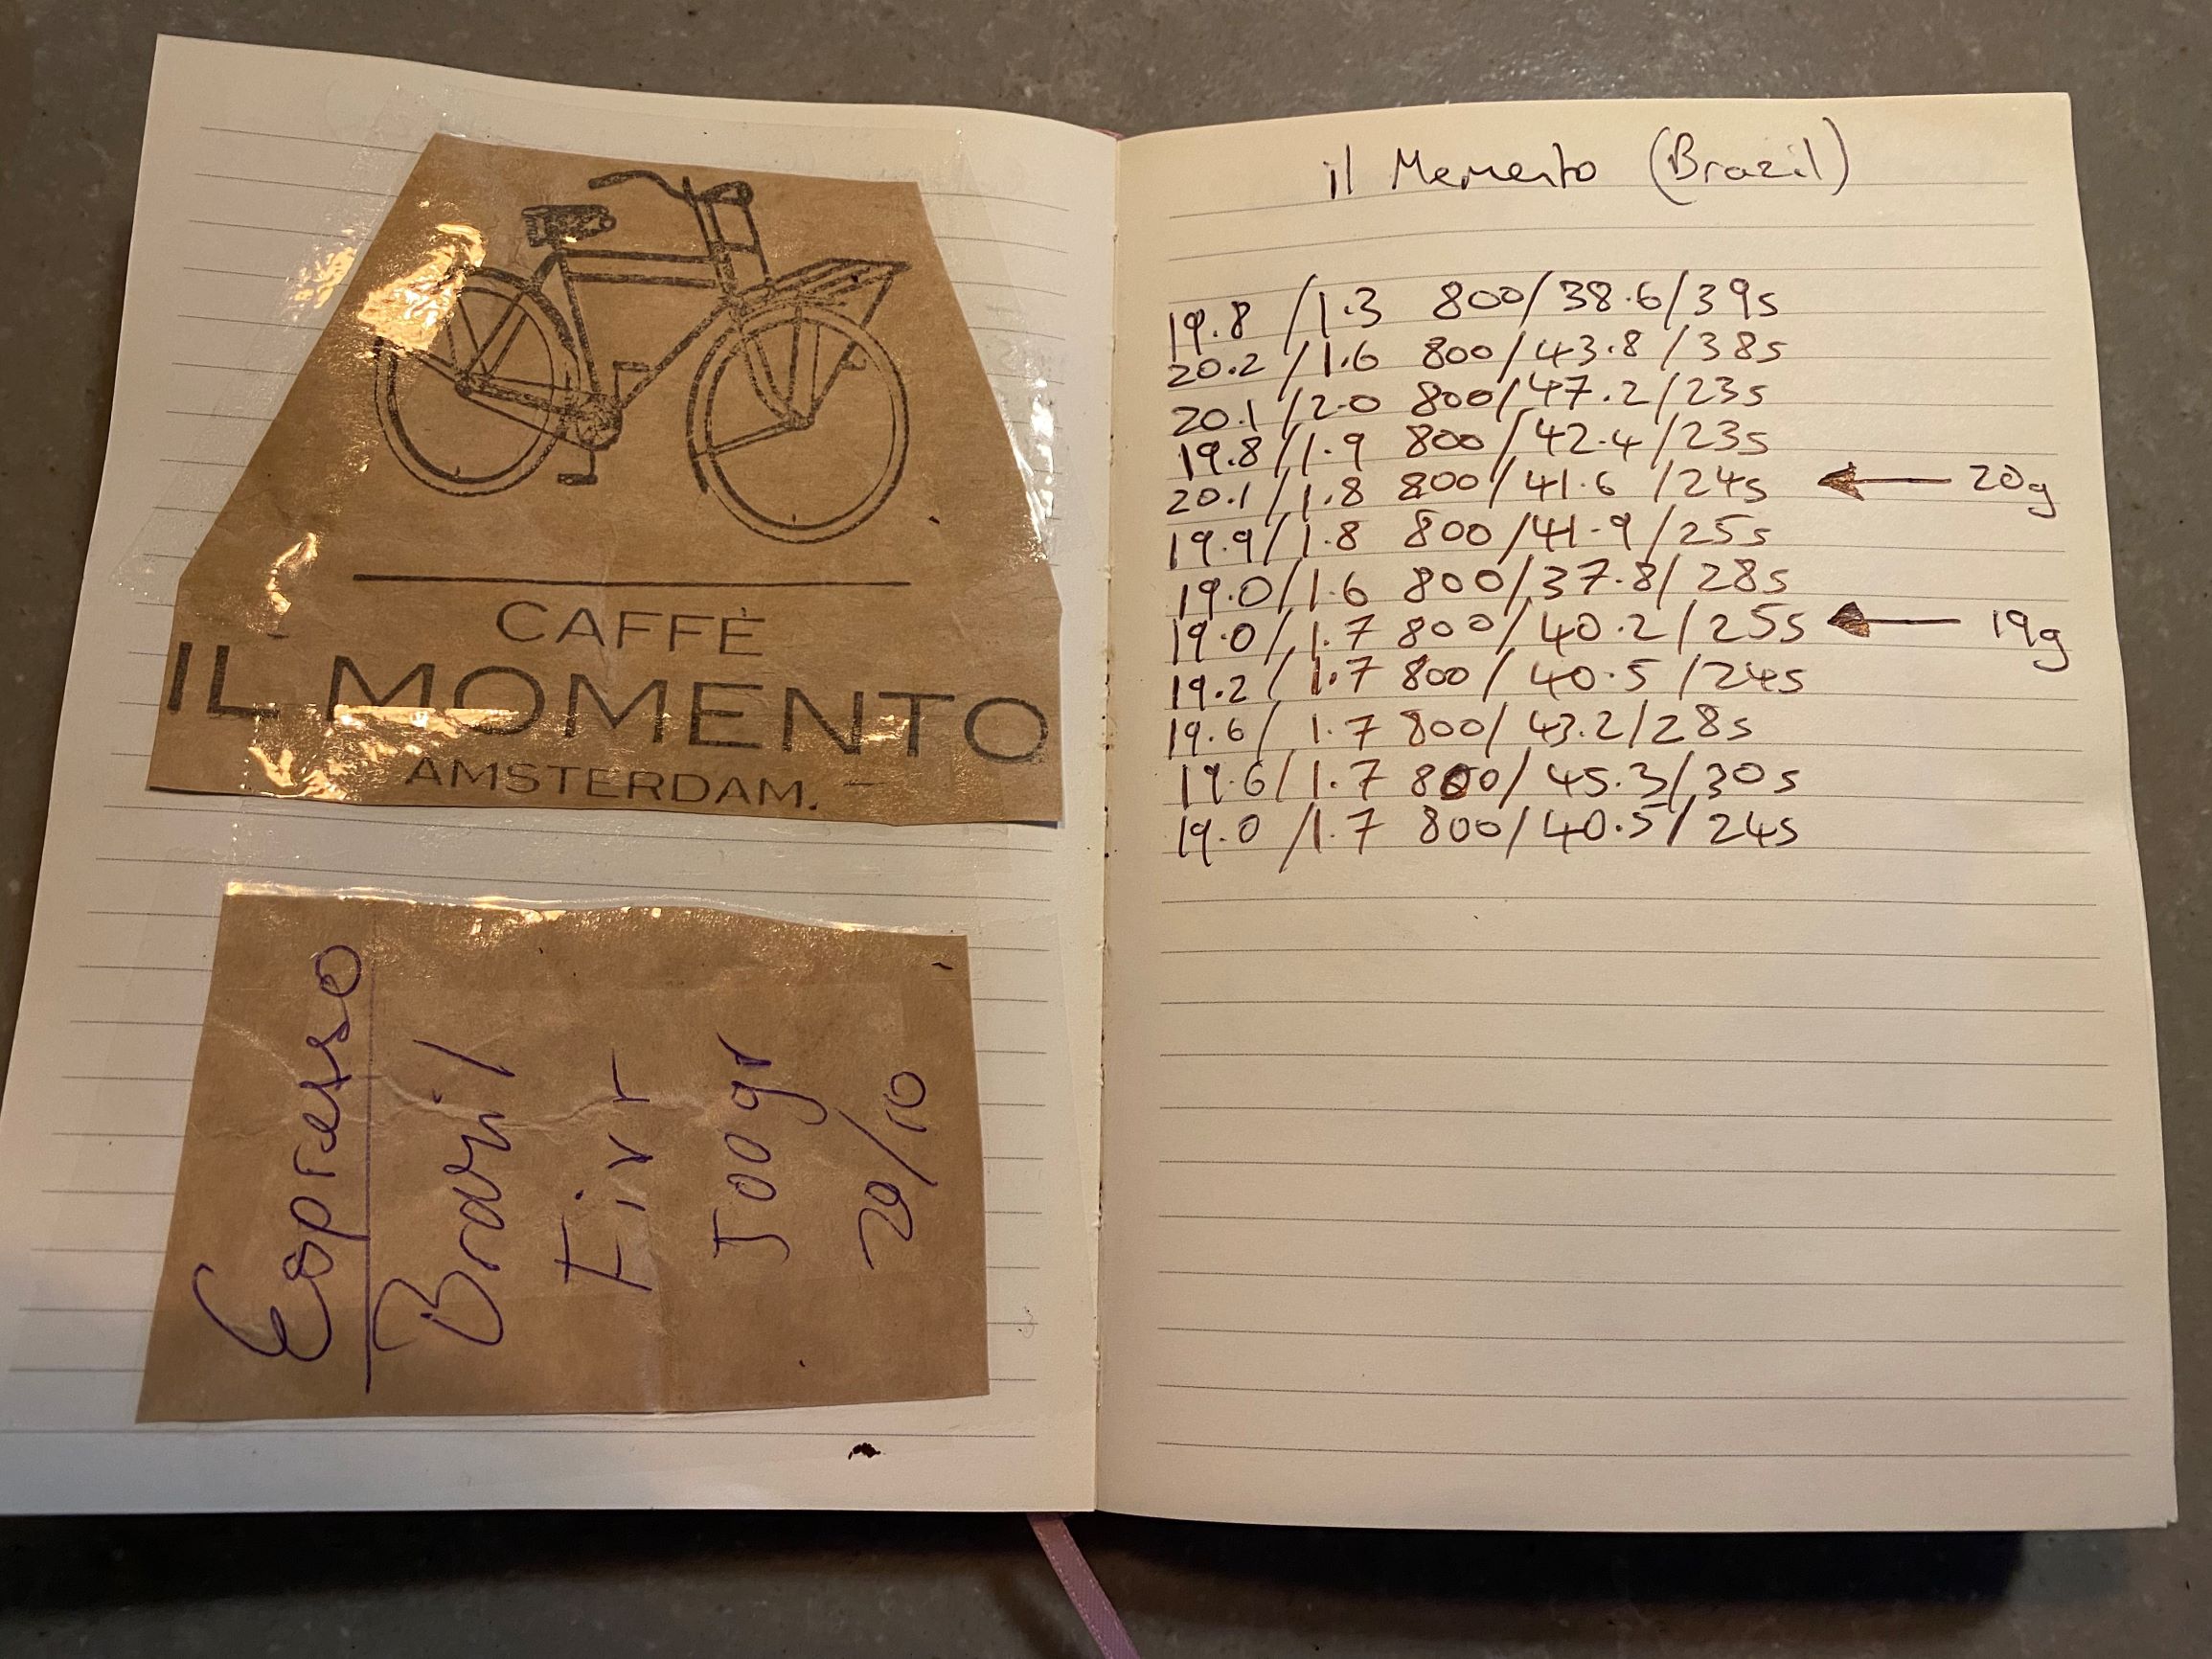 CAFFÈ
IL MOMENTO
AMSTERDAM.
Espresso
Brazil
500gr
20/10
il Memento (Brazil)
19.8 / 1.3 800/38.6/39s
20.2 / 1.6 800/43.8/38s
20.1 / 2.0 800/47.2/23s
19.8 / 1.9 800/42.4/23s
20.1 / 1.8 800/41.6/24s ← 20g
19.9 / 1.8 800/41.9/25s
19.0 / 1.6 800/37.8/28s
19.0 / 1.7 800/40.2/25s ← 19g
19.2 / 1.7 800/40.5/24s
19.6 / 1.7 800/43.2/28s
19.6 / 1.7 800/45.3/30s
19.0 / 1.7 800/40.5/24s